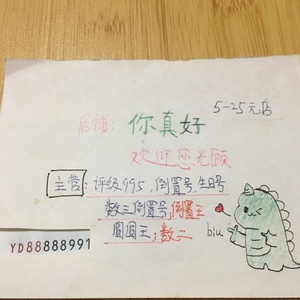 5-25元店
店铺：你真好
欢迎您光顾
主营：评级995,倒置号,生日号
数三倒置号,倒置王
圆圆王;数二
biu
YD88888991